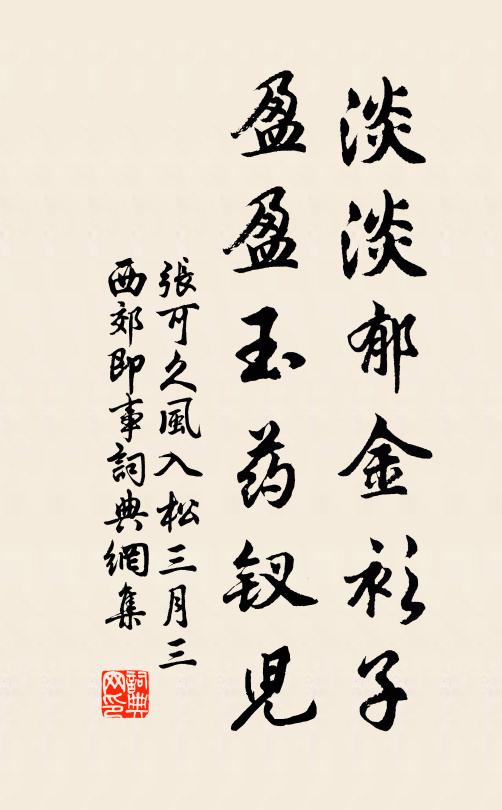 淡淡郁金衫子
盈盈玉药钗児
張可久風入松三月三
西郊即事詞典網集
詞典網印